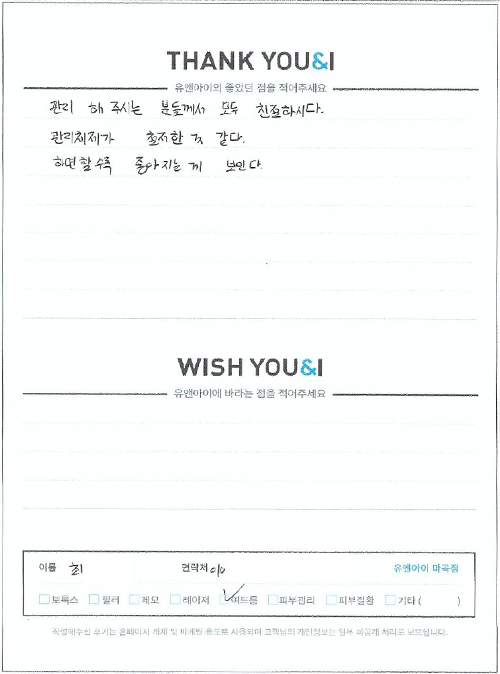 THANK YOU&I
유앤아이의 좋았던 점을 적어주세요
관리 해 주시는 분들께서 모두 친절하시다.
관리체제가 철저한 것 같다.
하면 할 수록 좋아지는 게 보인다.
WISH YOU&I
유앤아이에 바라는 점을 적어주세요
이름 최 연락처 010 유앤아이 마곡점
보톡스 필러 제모 레이저 여드름 피부관리 피부질환 기타 ( )
작성해주신 후기는 홈페이지 게재 및 마케팅 용도로 사용되며 고객님의 개인정보는 일부 비공개 처리로 보호됩니다.